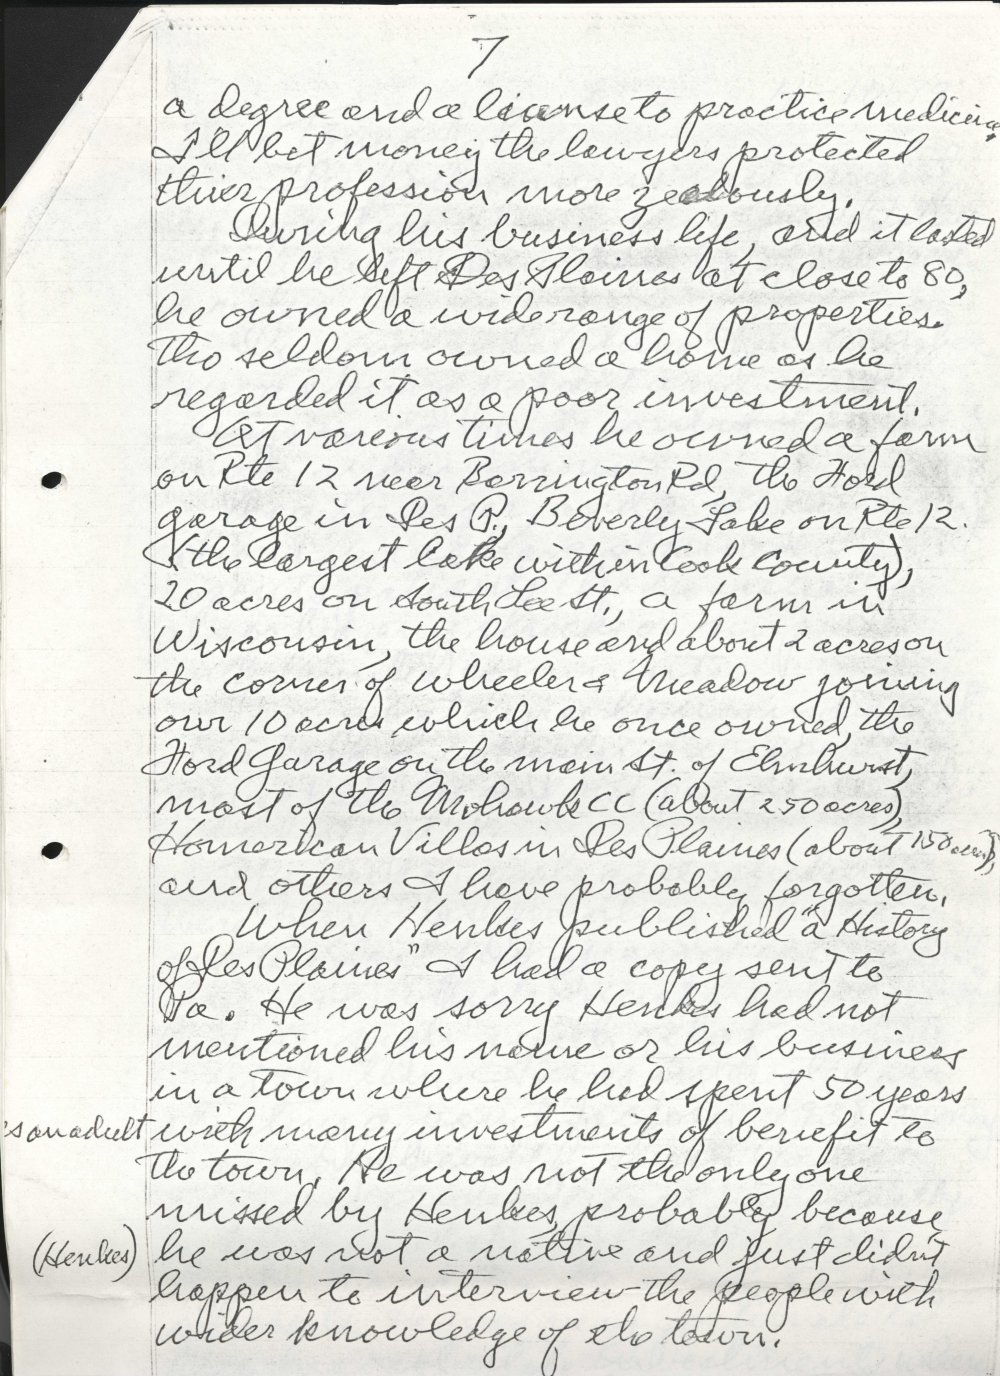 7
a degree and a license to practice medicine,
I'll bet money the lawyers protected
their profession more zealously.
During his business life, and it lasted
until he left Des Plaines at close to 80,
he owned a wide range of properties.
Tho seldom owned a home as he
regarded it as a poor investment.
At various times he owned a farm
on Rte 12 near Barrington Rd, the Ford
garage in Des P., Beverly Lake on Rte 12.
(the largest lake within Cook County),
20 acres on South Lee St., a farm in
Wisconsin, the house and about 2 acres on
the corner of Wheeler & Meadow joining
our 10 acres which he once owned, the
Ford Garage on the main St. of Elmhurst,
most of the Mohawk CC (about 250 acres),
Homerican Villas in Des Plaines (about 150 acres),
and others I have probably forgotten.
When Henkes published "a History
of Des Plaines" I had a copy sent to
Pa. He was sorry Henkes had not
mentioned his name or his business
in a town where he had spent 50 years
as an adult with many investments of benefit to
the town. He was not the only one
missed by Henkes, probably because
(Henkes) he was not a native and just didn't
happen to interview the people with
wider knowledge of the town.